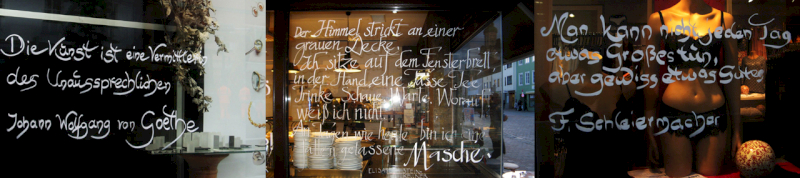 Die Kunst ist eine Vermittlerin
des Unaussprechlichen
Johann Wolfgang von Goethe
Der Himmel strickt an einer
grauen Decke,
Ich sitze auf dem Fensterbrett
in der Hand eine Tasse Tee
Trinke, Schaue, Warte, Worauf
weiß ich nicht.
wie heute bin ich
gelassene Masche.
Man kann nicht jeden Tag
etwas Großes tun,
aber gewiss etwas Gutes
F. Schleiermacher